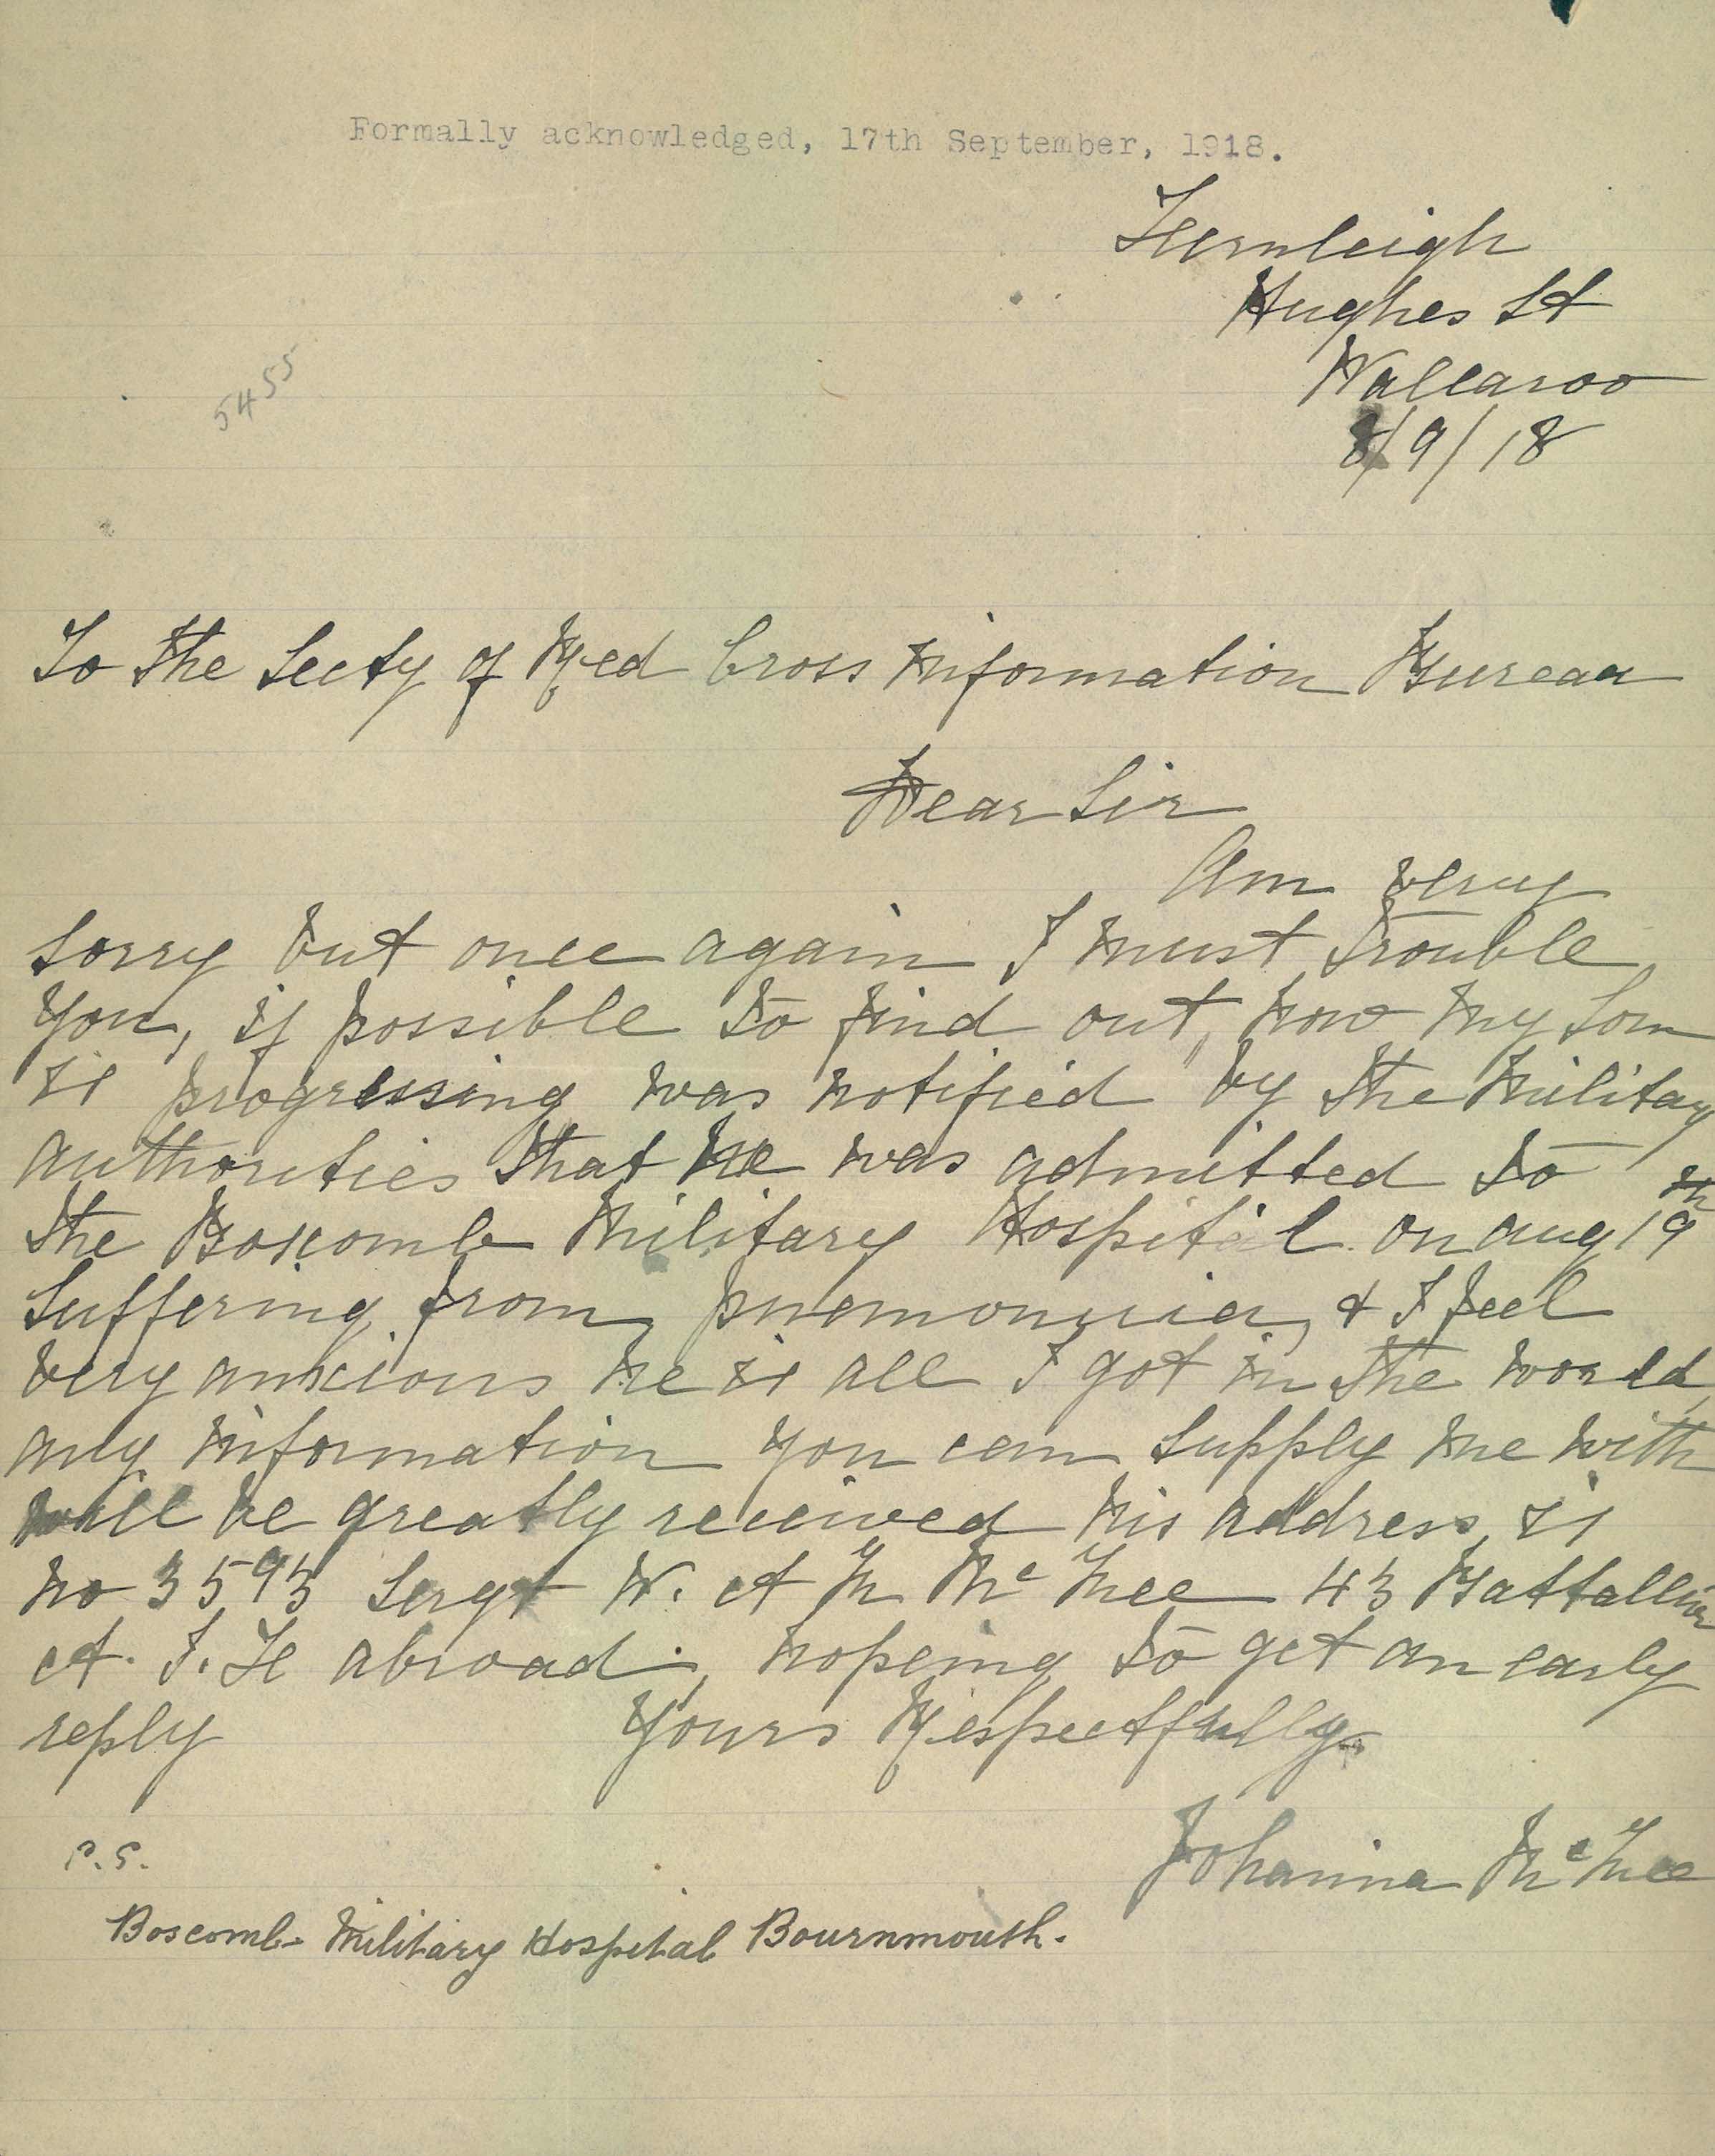 Formally acknowledged, 17th September, 1918.
Fernleigh
Hughes St
Wallaroo
8/9/18
5455
To the Secty of Red Cross information Bureau
Dear Sir
Am very
sorry but once again I must trouble
you, if possible to find out, how my Son
is progressing was notified by the military
authorities that he was admitted to
the Boscomb Military Hospital on aug 19th
suffering from pnemonuia, & I feel
very anxious he is all I got in the world,
any information you can supply me with
will be greatly received his address is
no 3593 Sergt W. A M McFree 43 Battallion
A. I. F abroad, hopeing to get an early
reply Yours Respectfully
Johanna McFree
P.S.
Boscomb Military Hospital Bournmouth.